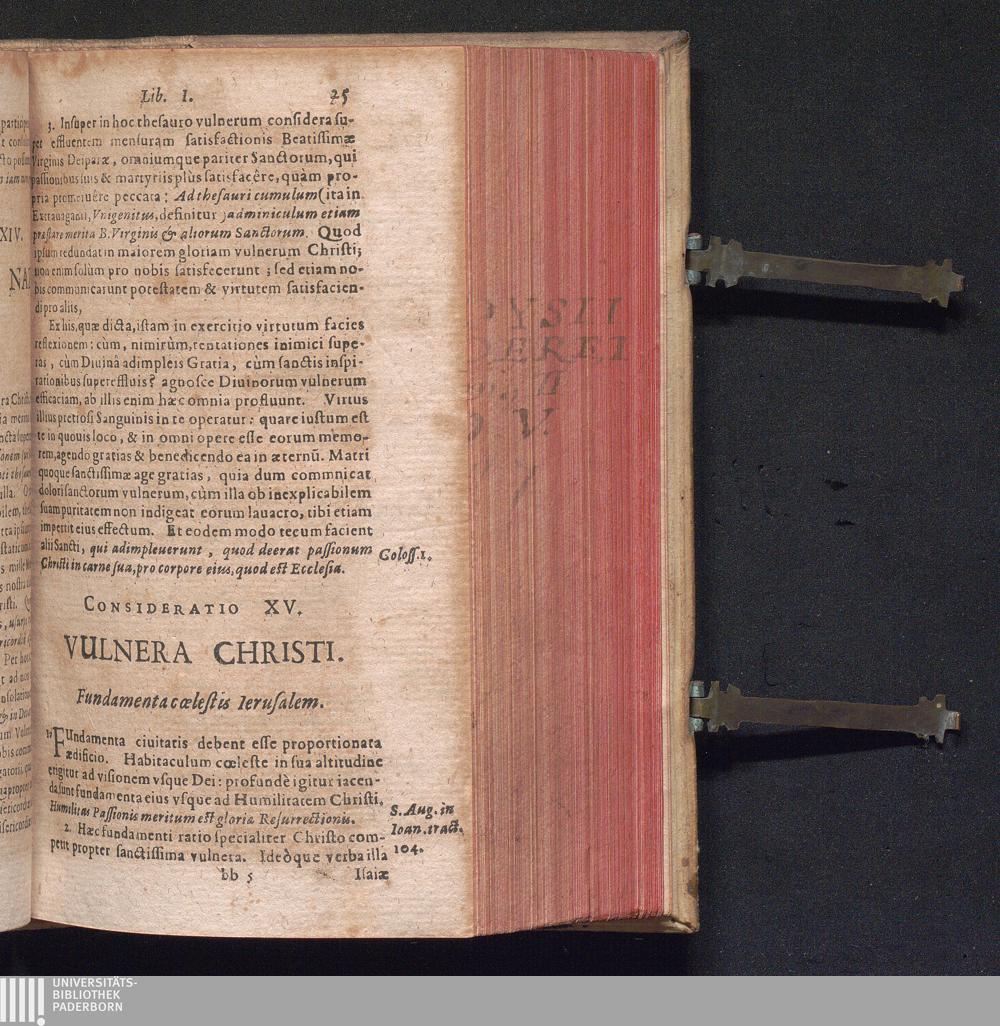 Lib. I. 25
3. Insuper in hoc thesauro vulnerum considera su-
per effluentem mensuram satisfactionis Beatissimæ
Virginis Deiparæ, omniumque pariter Sanctorum, qui
passionibus suis & martyriis plùs satisfacêre, quàm pro-
pria promeruêre peccata; Ad thesauri cumulum (ita in
Extrauaganti, Vnigenitus, definitur) adminiculum etiam
præstare merita B. Virginis & aliorum Sanctorum. Quod
ipsum redundat in maiorem gloriam vulnerum Christi;
non enim solùm pro nobis satisfecerunt; sed etiam no-
bis communicarunt potestatem & virtutem satisfacien-
di pro aliis,
Ex his, quæ dicta, istam in exercitio virtutum facies
reflexionem: cùm, nimirùm, tentationes inimici supe-
ras, cùm Diuinâ adimpleris Gratia, cùm sanctis inspi-
rationibus supereffluis? agnosce Diuinorum vulnerum
efficaciam, ab illis enim hæc omnia profluunt. Virtus
illius pretiosi Sanguinis in te operatur: quare iustum est
te in quouis loco, & in omni opere esse eorum memo-
rem, agendo gratias & benedicendo ea in æternũ. Matri
quoque sanctissimæ age gratias, quia dum commnicat
dolori sanctorum vulnerum, cùm illa ob inexplicabilem
suam puritatem non indigeat eorum lauacro, tibi etiam
impertit eius effectum. Et eodem modo tecum facient
alii Sancti, qui adimpleuerunt, quod deerat passionum
Christi in carne sua, pro corpore eius, quod est Ecclesia.
Coloss. 1.
CONSIDERATIO XV.
VULNERA CHRISTI.
Fundamenta cœlestis Ierusalem.
Fundamenta ciuitatis debent esse proportionata
ædificio. Habitaculum cœleste in sua altitudine
erigitur ad visionem vsque Dei: profundè igitur iacen-
da sunt fundamenta eius vsque ad Humilitatem Christi,
Humilitas Passionis meritum est gloria Resurrectionis.
S. Aug. in
Ioan. tract.
104.
2. Hæc fundamenti ratio specialiter Christo com-
petit propter sanctissima vulnera. Ideòque verba illa
bb 5 Isaiæ
XIV.
UNIVERSITÄTS-
BIBLIOTHEK
PADERBORN